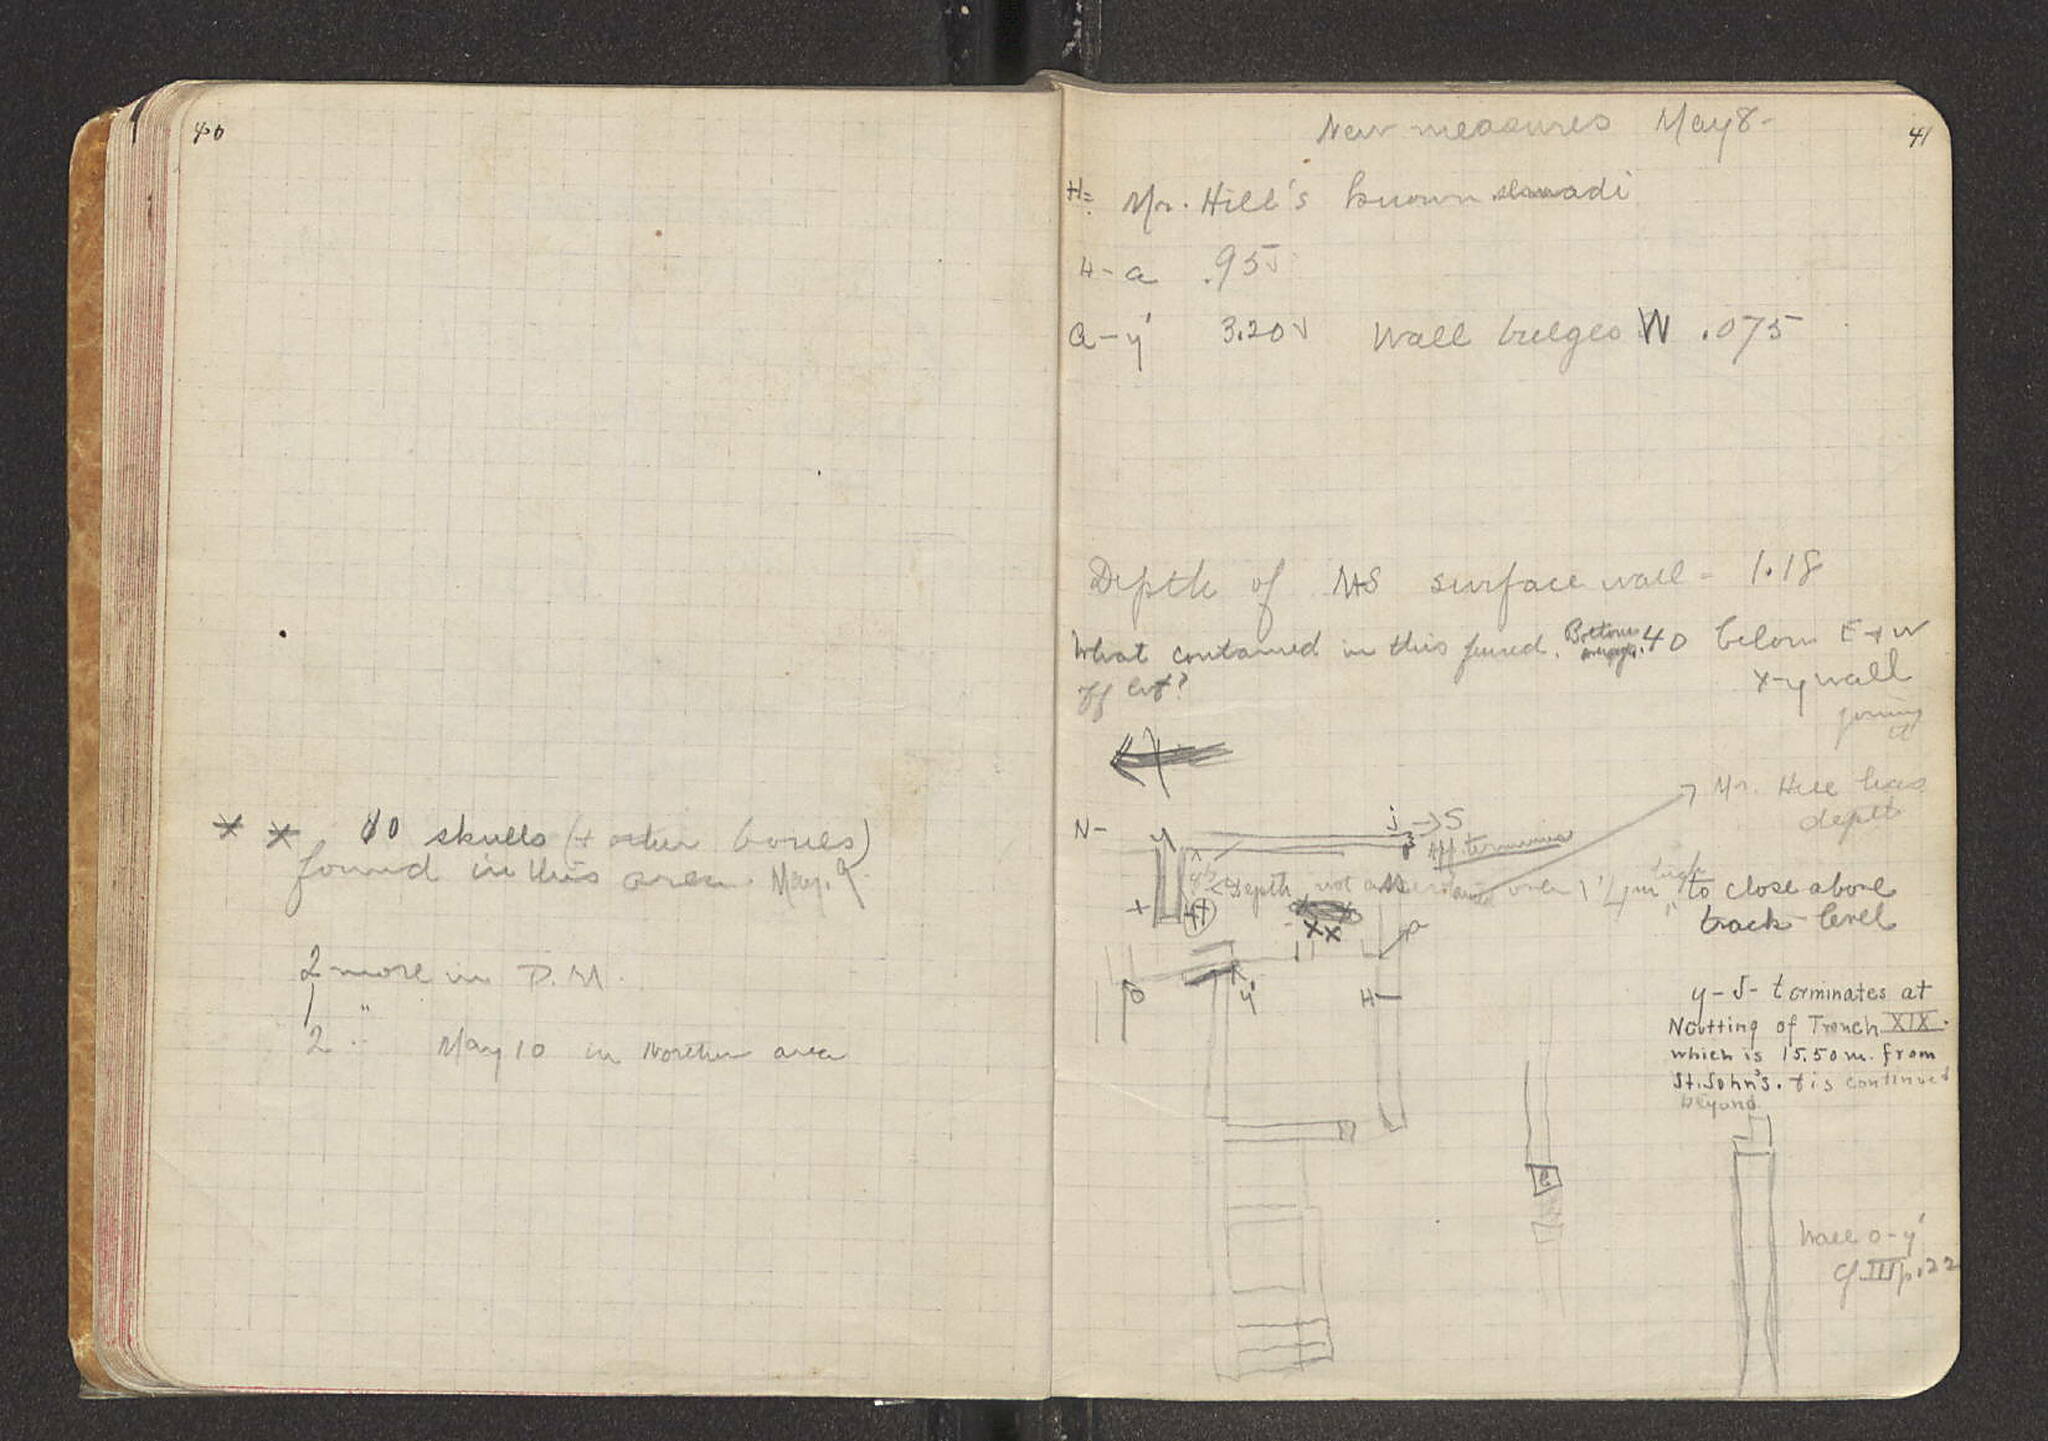 40
* * 10 skulls (+ other bones)
found in this area. May. 9.
2 more in D.M.
1 "
2 " May 10 in Northern area
41
New measures May 8-
H = Mr. Hill's known
H-a .95
a-y' 3.20 Wall bulges W .075
Depth of N+S surface wall = 1.18
What contained in this period. Bottom .40 below E+W
x-y wall
joining
it
Mr. Hill has
depth
N- y j → S
Depth not over 1 1/4 m high to close above
track level
x H
xx
a
o y' H
y-J- terminates at
N cutting of Trench XIX.
which is 15.50 m. from
St. John's. & is continued
beyond
Wall o-y'
cf III p. 22